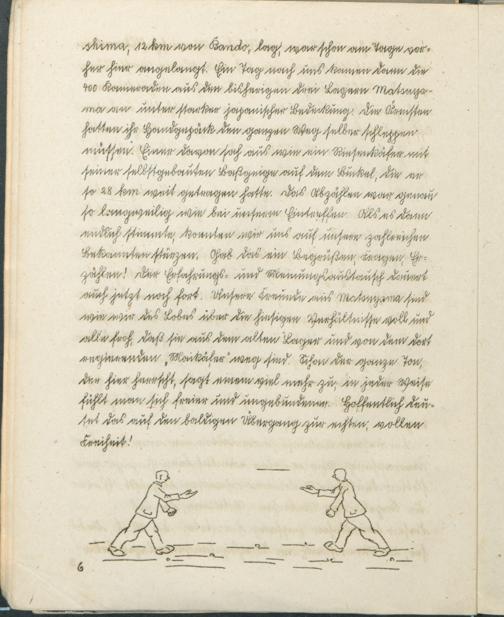 shima, 12 km von Bando, lag, war schon am Tage vor-
her hier angelangt. Ein Tag nach uns kamen dann die
400 Kameraden aus den bisherigen drei Lagern Matsuya-
ma an unter starker japanischer Bedeckung. Die Ärmsten
hatten ihr Handgepäck den ganzen Weg selber schleppen
müssen. Einer davon sah aus wie ein Riesenkäfer mit
seiner selbstgebauten Baßgeige auf dem Buckel, die er
so 28 km weit getragen hatte. Das Abzählen war genau
so langweilig wie bei unserm Eintreffen. Als es dann
endlich stimmte, konnten wir uns auf unsere zahlreichen
Bekannten stürzen. Gab das ein Begrüßen, Fragen, Er-
zählen! Der Erfahrungs- und Meinungsaustausch dauert
auch jetzt noch fort. Unsere Freunde aus Matsuyama sind
wie wir des Lobes über die hiesigen Verhältnisse voll und
alle froh, daß sie aus dem alten Lager und von dem dort
regierenden „Maikäfer" weg sind. Schon der ganze Ton,
der hier herrscht, sagt einem viel mehr zu, in jeder Weise
fühlt man sich freier und ungebundener. Hoffentlich deu-
tet das auf den baldigen Übergang zur echten, vollen
Freiheit!
6